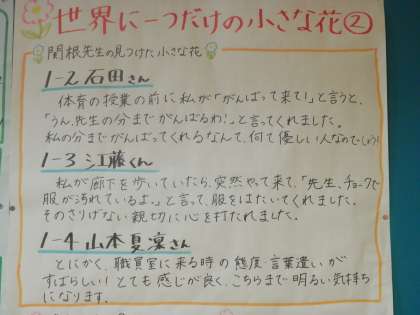 世界に一つだけの小さな花②
関根先生の見つけた小さな花
1-2 石田さん
体育の授業の前に私が「がんばって来て!」と言うと、
「うん、先生の分までがんばるわ!」と言ってくれました。
私の分までがんばってくれるなんて、何て優しい人なのでしょう!
1-3 江藤くん
私が廊下を歩いていたら、突然やって来て、「先生、チョークで
服が汚れているよ。」と言って、服をはたいてくれました。
そのさりげない親切に心を打たれました。
1-4 山本夏凛さん
とにかく、職員室に来る時の態度・言葉遣いが
すばらしい!とても感じが良く、こちらまで明るい気持ち
になります。